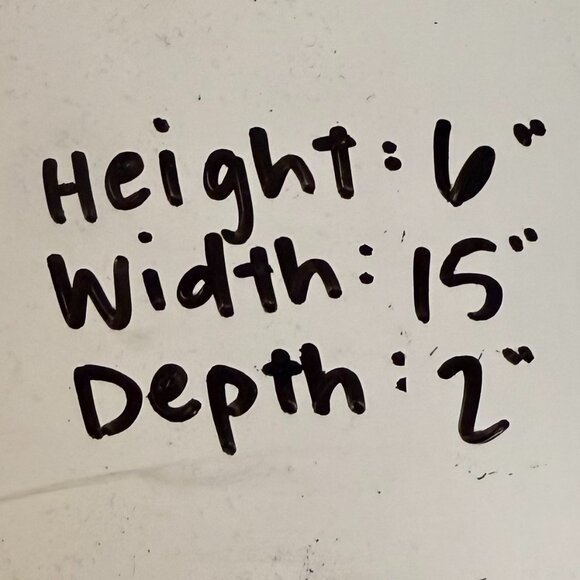 Height: 6"
Width: 15"
Depth: 2"